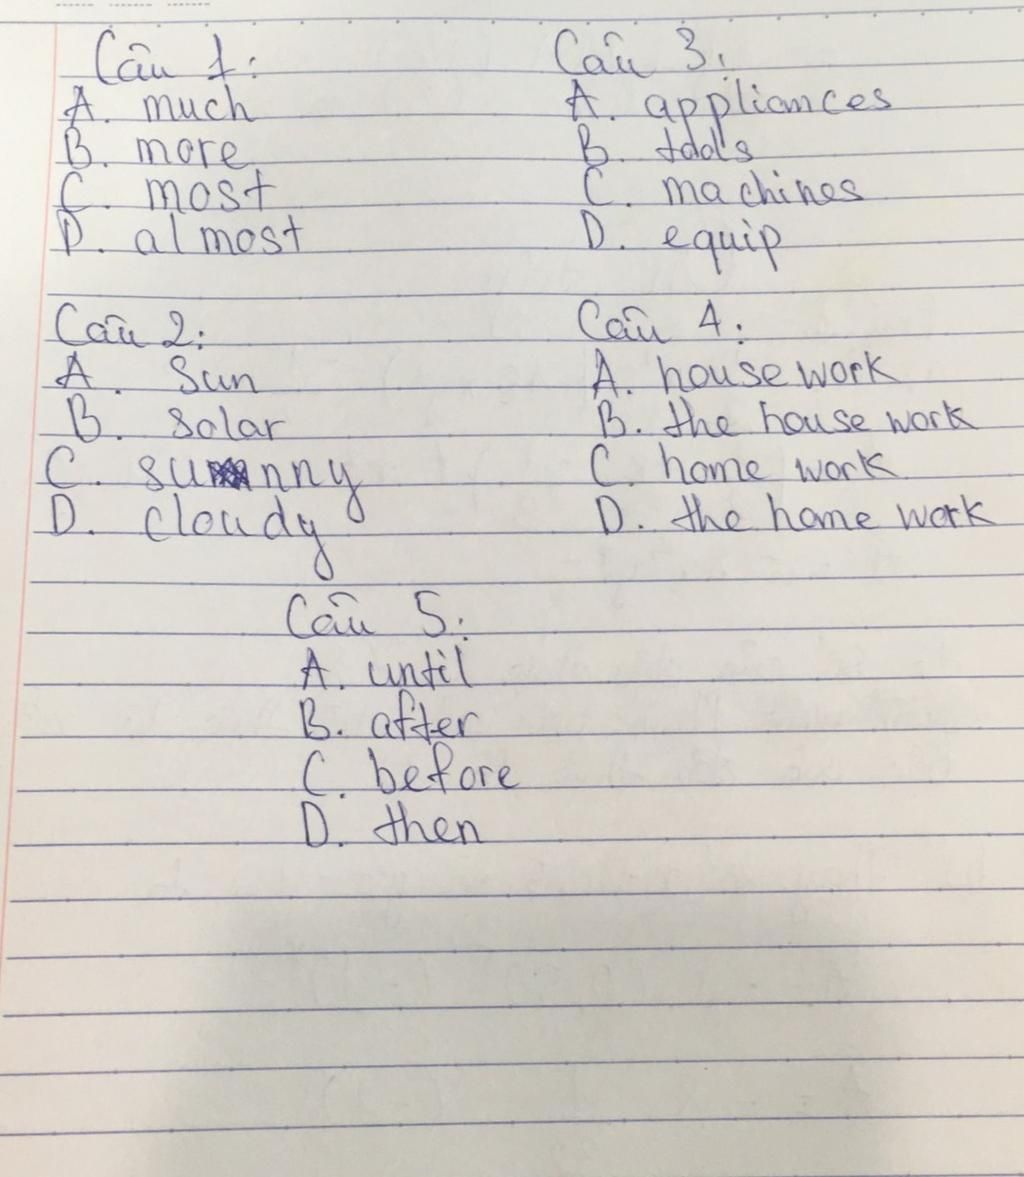 Câu 1:
A. much
B. more
C. most
D. almost
Câu 2:
A. Sun
B. Solar
C. sunny
D. cloudy
Câu 3:
A. appliances
B. tools
C. machines
D. equip
Câu 4:
A. house work
B. the house work
C. home work
D. the home work
Câu 5:
A. until
B. after
C. before
D. then